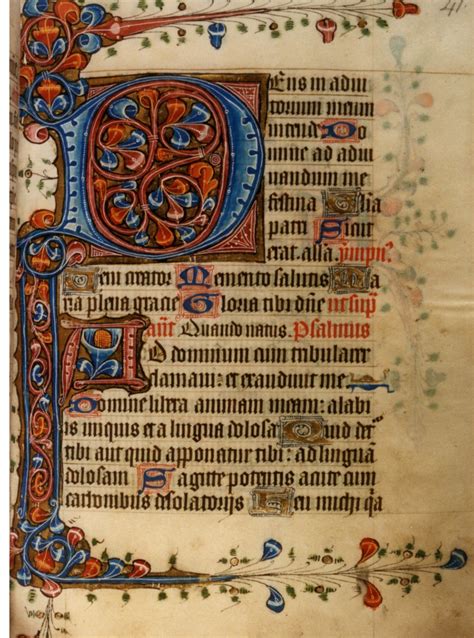 41
Deus in adiu
torium meum
intende Do
mine ad adiu
uandum me
festina Glia
patri Sicut
erat. alla. ympn9.
Ueni creator Memento salutis Ma
ria plena gracie Gloria tibi dne ut sup
ant Quando natus. Psalmus
Ad dominum cum tribularer
clamaui: et exaudiuit me
Domine libera animam meam: a labi
is iniquis et a lingua dolosa Quid det
tibi aut quid apponatur tibi: ad lingua
dolosam Sagitte potentis acute cum
carbonibus desolatorijs Heu michi qa